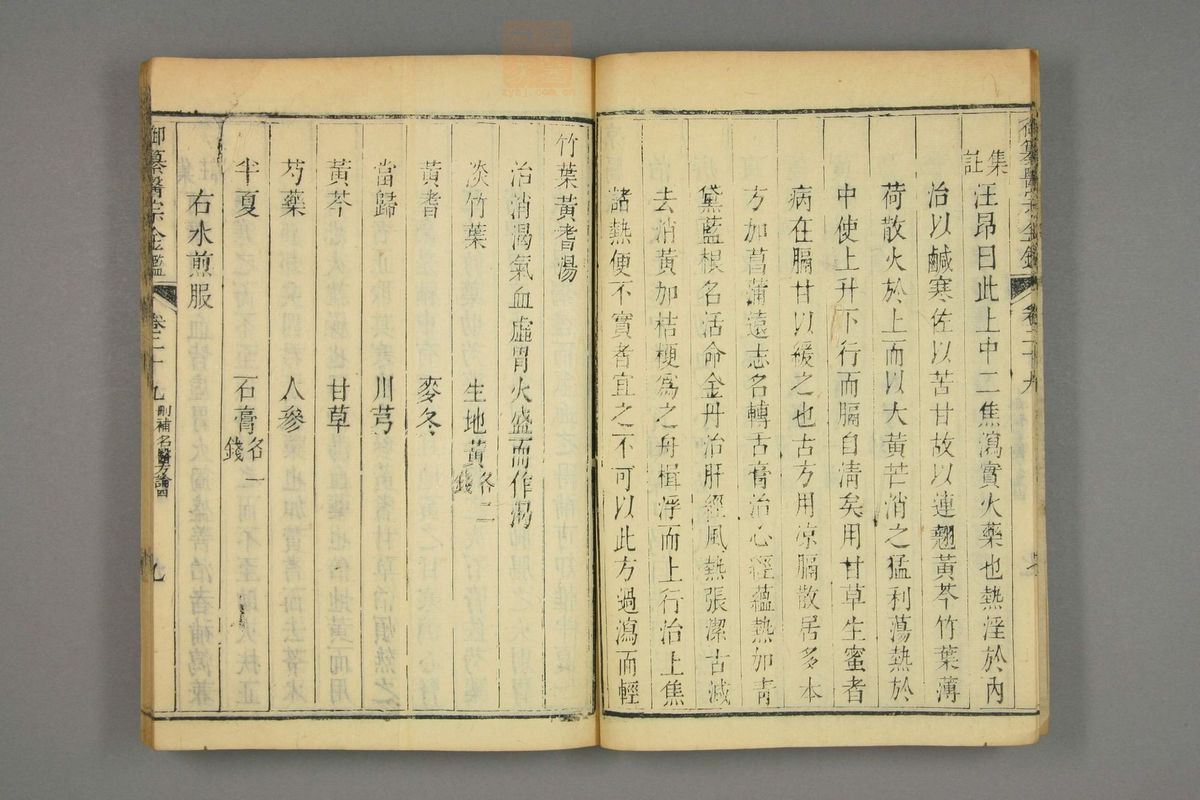 集註 汪昂曰此上中二焦瀉實火藥也熱淫於內
治以鹹寒佐以苦甘故以連翹黃芩竹葉薄
荷散火於上而以大黃芒消之猛利蕩熱於
中使上升下行而膈自清矣用甘草生蜜者
病在膈甘以緩之也古方用凉膈散居多本
方加菖蒲遠志名轉舌膏治心經蘊熱加青
黛藍根名活命金丹治肝經風熱張潔古減
去消黃加桔梗爲之舟楫浮而上行治上焦
諸熱便不實者宜之不可以此方過瀉而輕
竹葉黃耆湯
治消渴氣血虛胃火盛而作渴
淡竹葉 生地黃各二錢
黃耆 麥冬
當歸 川芎
黃芩 甘草
芍藥 人參
半夏 石膏各一錢
右水煎服
御纂醫宗金鑑 卷二十九 刪補名醫方論四 七